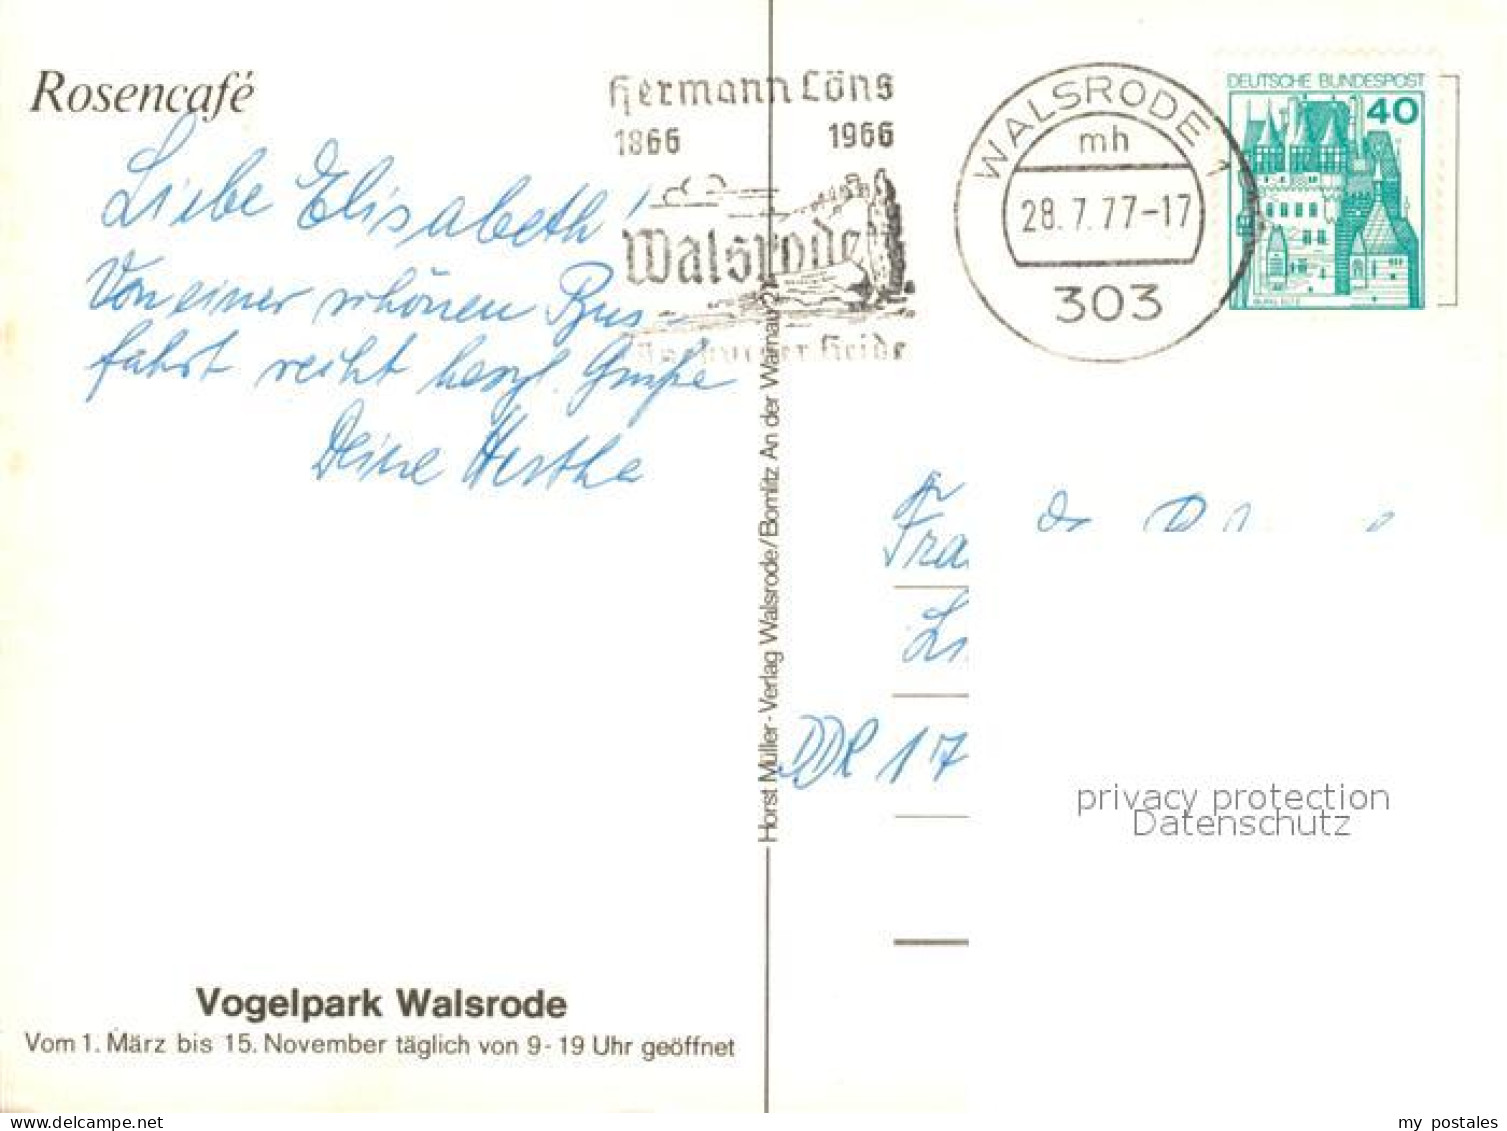 Rosencafé
Liebe Elisabeth!
Von einer schönen Bus-
fahrt recht herzl. Grüße
Deine Hertha
Vogelpark Walsrode
Vom 1. März bis 15. November täglich von 9-19 Uhr geöffnet
Horst Müller-Verlag Walsrode/Bomlitz An der Warnau 21
Hermann Löns
1866 1966
Walsrode
Lüneburger Heide
WALSRODE 1
mh
28.7.77-17
303
DEUTSCHE BUNDESPOST
40
BURG ELTZ
Fra
DDR 17
privacy protection
Datenschutz
my postales